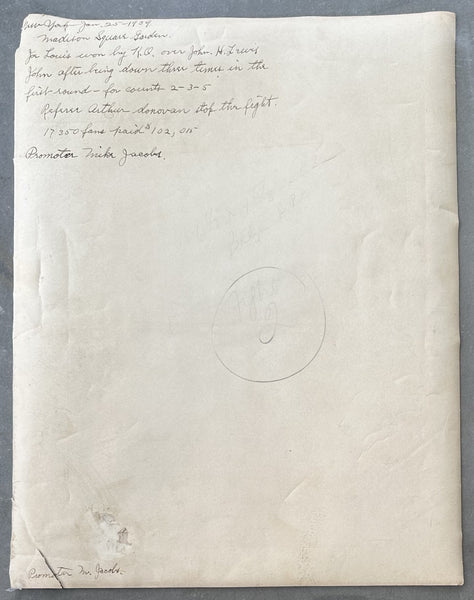 New York - Jan. 25 - 1939.
Madison Square Garden.
Joe Louis won by K.O. over John. H. Lewis
John after being down three times in the
first round - for counts 2-3-5
Referee Arthur donovan stop the fight.
17350 fans paid $102,015
Promoter Mike Jacobs.
Promoter M. Jacobs.